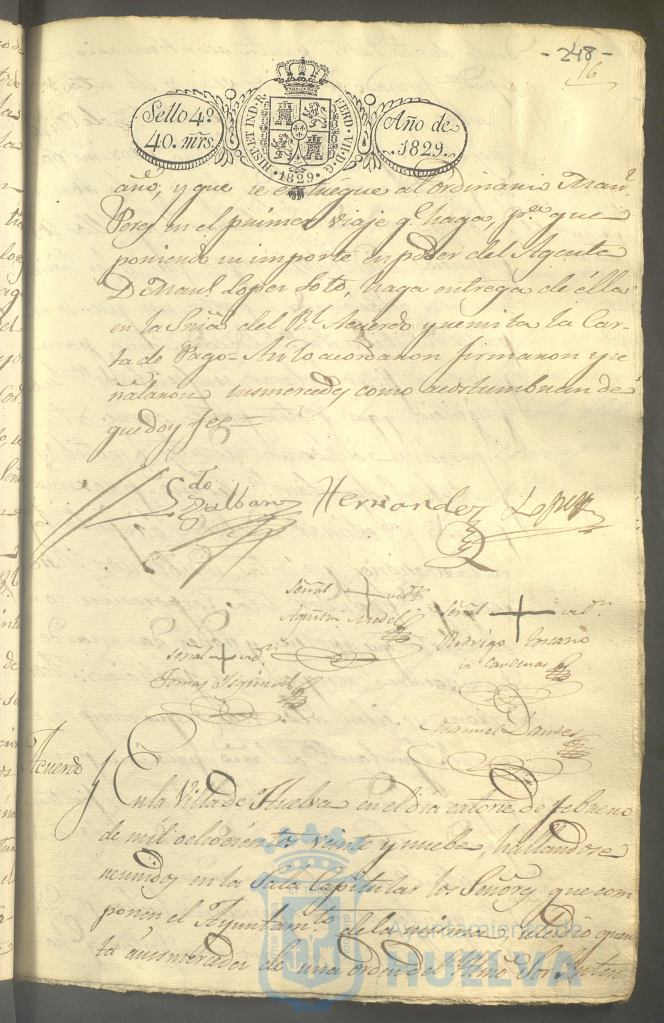 - 248 -
16
Sello 4º
40. mrs.
HISP. ET IND. R. FERD. VII. D. G. 1829.
Año de
1829.
año, y que se entregue al ordinario Manl.
Perez en el primer viaje q.e haga, p.a que
poniendo su importe en poder del Agente
D. Manl. Lopez Soto, haga entrega de ella
en la Sriã del Rl. Acuerdo y remita la Car-
ta de Pago= Asi lo acordaron firmaron y se
ñalaron susmercedes como acostumbran de
que doy fe=
Hernandez Lopez
Señal + del Sr.
Agustin Medel
Señal + del Sr.
Rodrigo
Cardenas
Señal +
Tomas
Manuel
Acuerdo
En la Villa de Huelva en el dia catorce de febrero
de mil ochocientos veinte y nuebe, hallandose
reunidos en la Sala Capitular los Señores que com
ponen el Ayuntam.to de la misma, se dió quen
ta a susmercedes de una orden del Ylmo. Sor. Inten
Ayuntamiento de
HUELVA